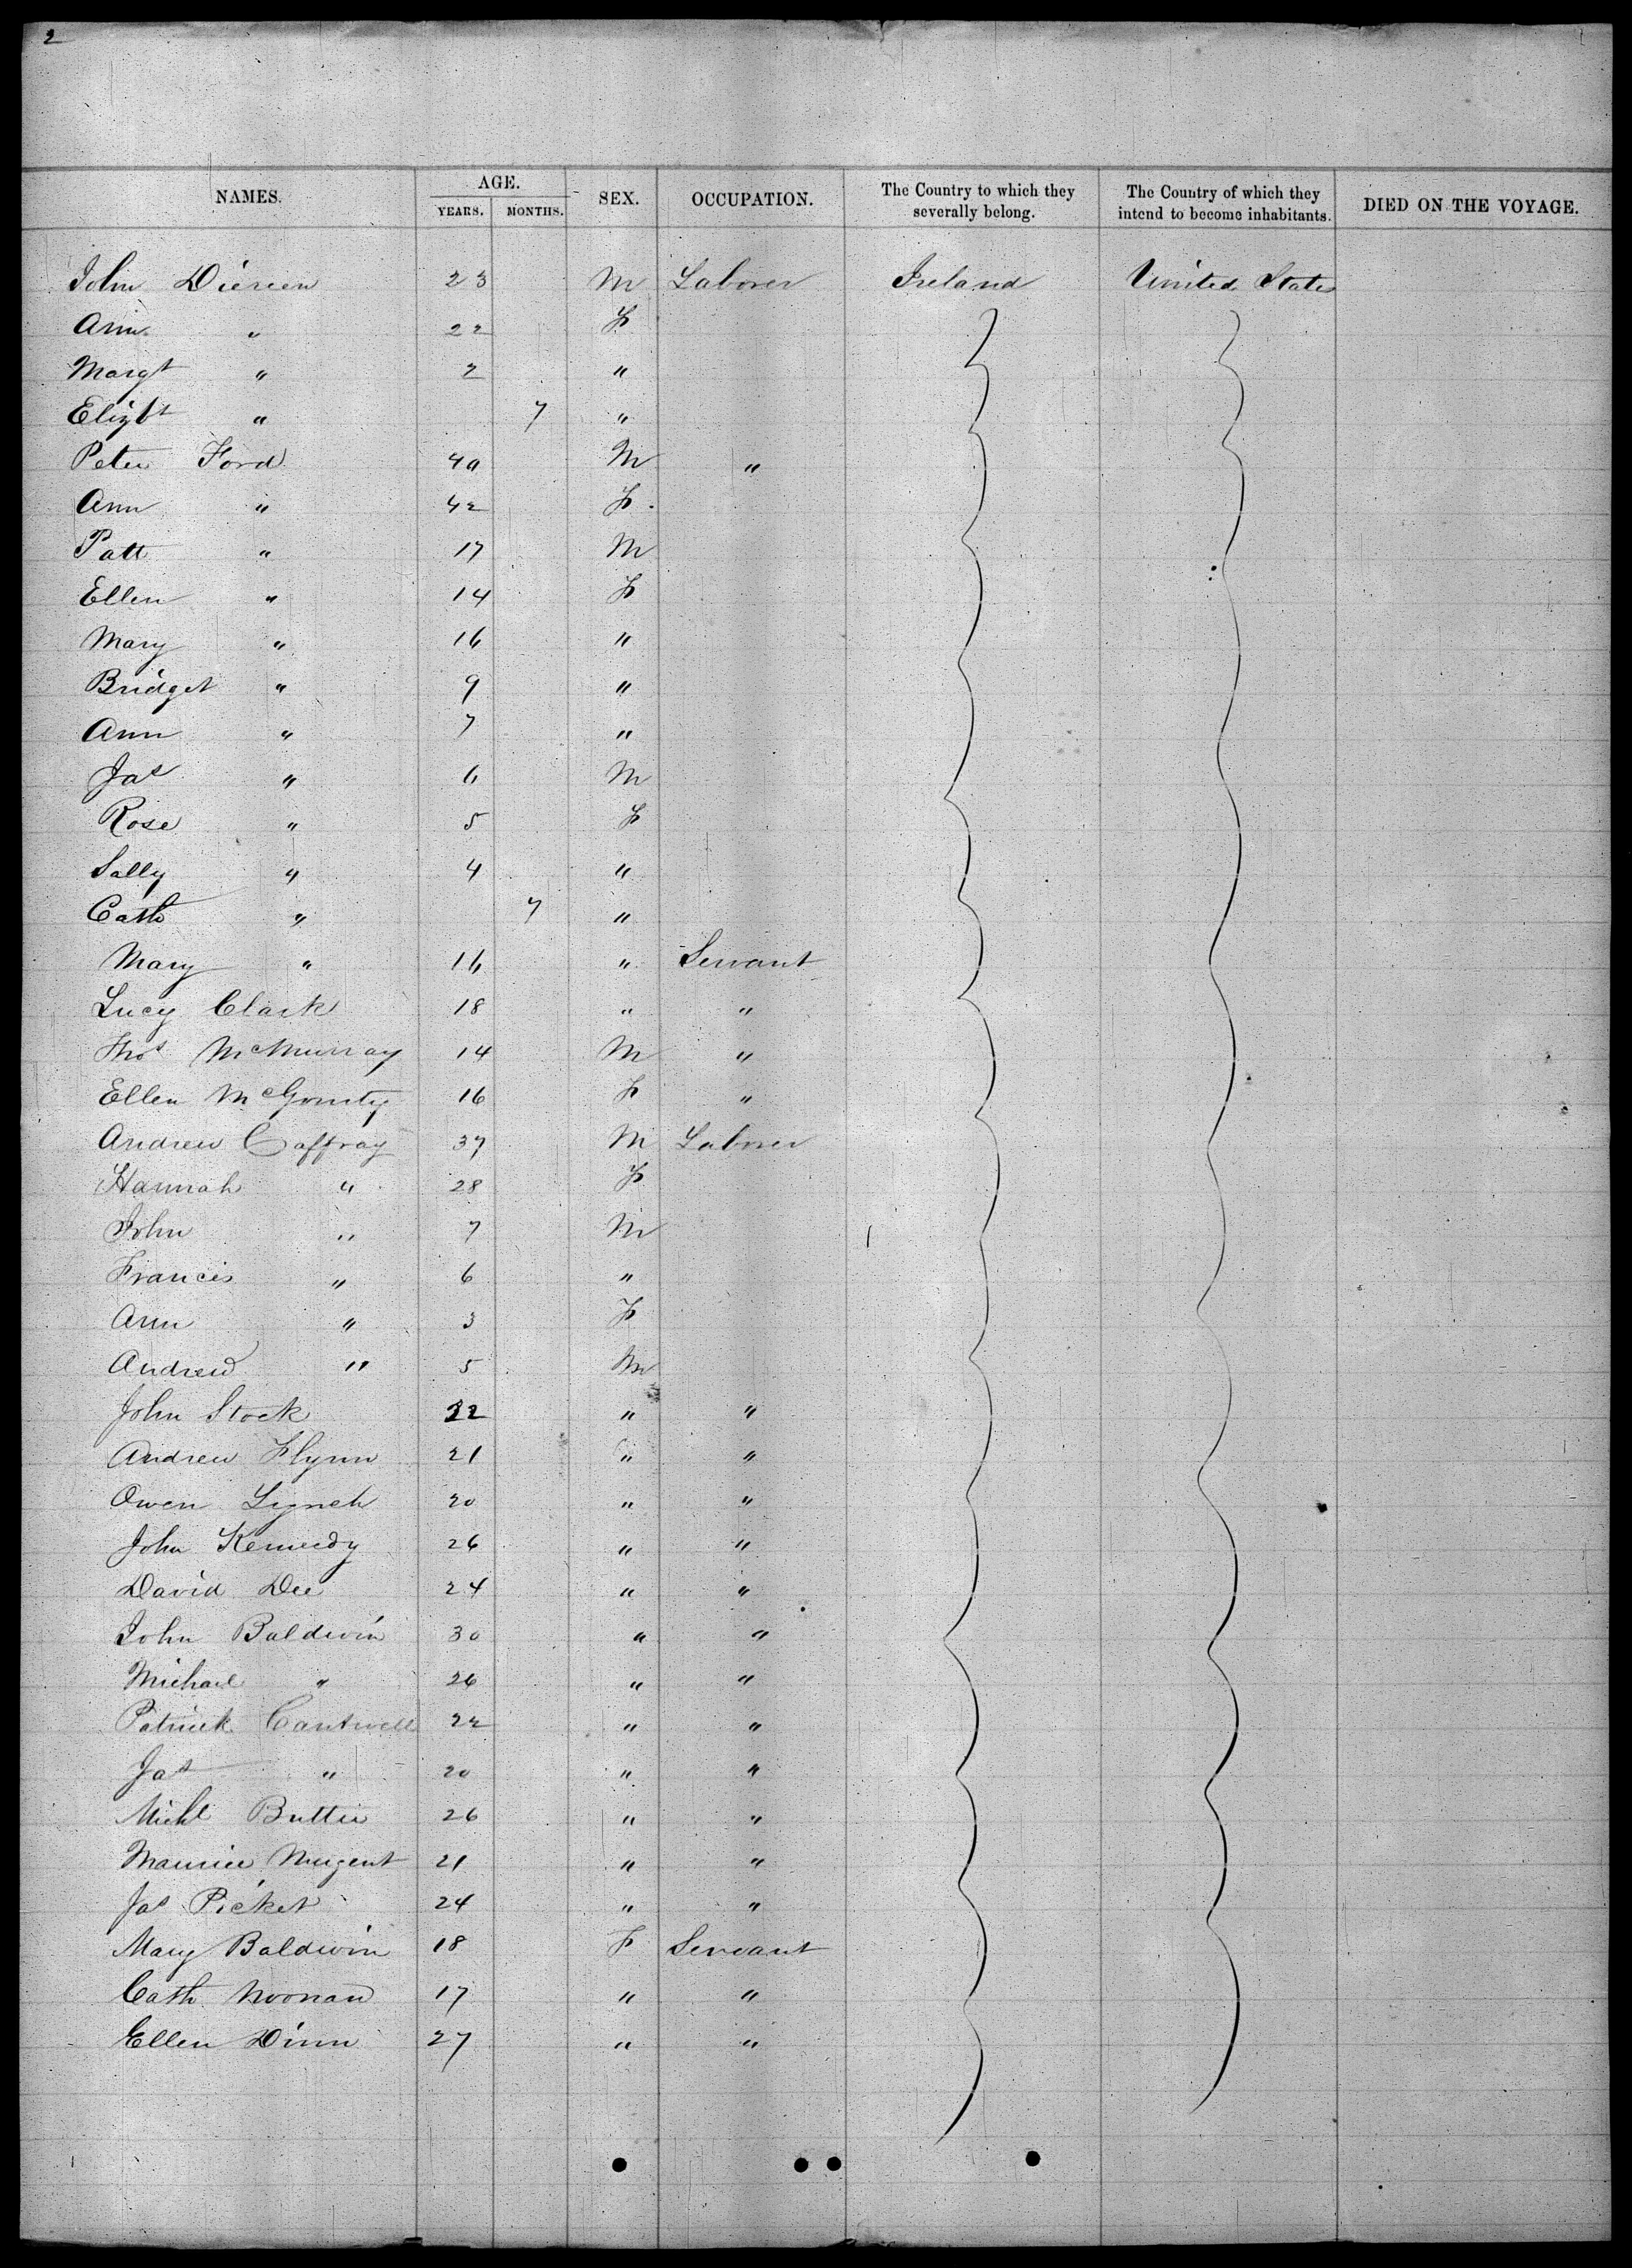 2
NAMES. AGE. YEARS. MONTHS. SEX. OCCUPATION. The Country to which they severally belong. The Country of which they intend to become inhabitants. DIED ON THE VOYAGE.
John 23 M Laborer Ireland United States
Ann " 22 F
Margt " 2 "
Elizbt " 7 "
Peter Ford 40 M "
Ann " 42 F.
Patt " 17 M
Ellen " 14 F
Mary " 16 "
Bridget " 9 "
Ann " 7 "
Jas " 6 M
Rose " 5 F
Sally " 4 "
Cath " 7 "
Mary " 16 " Servant
Lucy Clark 18 " "
Thos McMurray 14 M "
Ellen 16 F "
Andrew Caffray 37 M Laborer
Hannah " 28 F
John " 7 M
Francis " 6 "
Ann " 3 F
Andrew " 5 M
John Stock 22 " "
Andrew Flynn 21 " "
Owen Lynch 20 " "
John Kennedy 26 " "
David Dee 24 " "
John Baldwin 30 " "
Michael " 26 " "
Patrick Cantwell 22 " "
Jas " 20 " "
Michl Butler 26 " "
Maurice Nugent 21 " "
Jas Picket 24 " "
Mary Baldwin 18 F Servant
Cath Noonan 17 " "
Ellen Dinn 27 " "